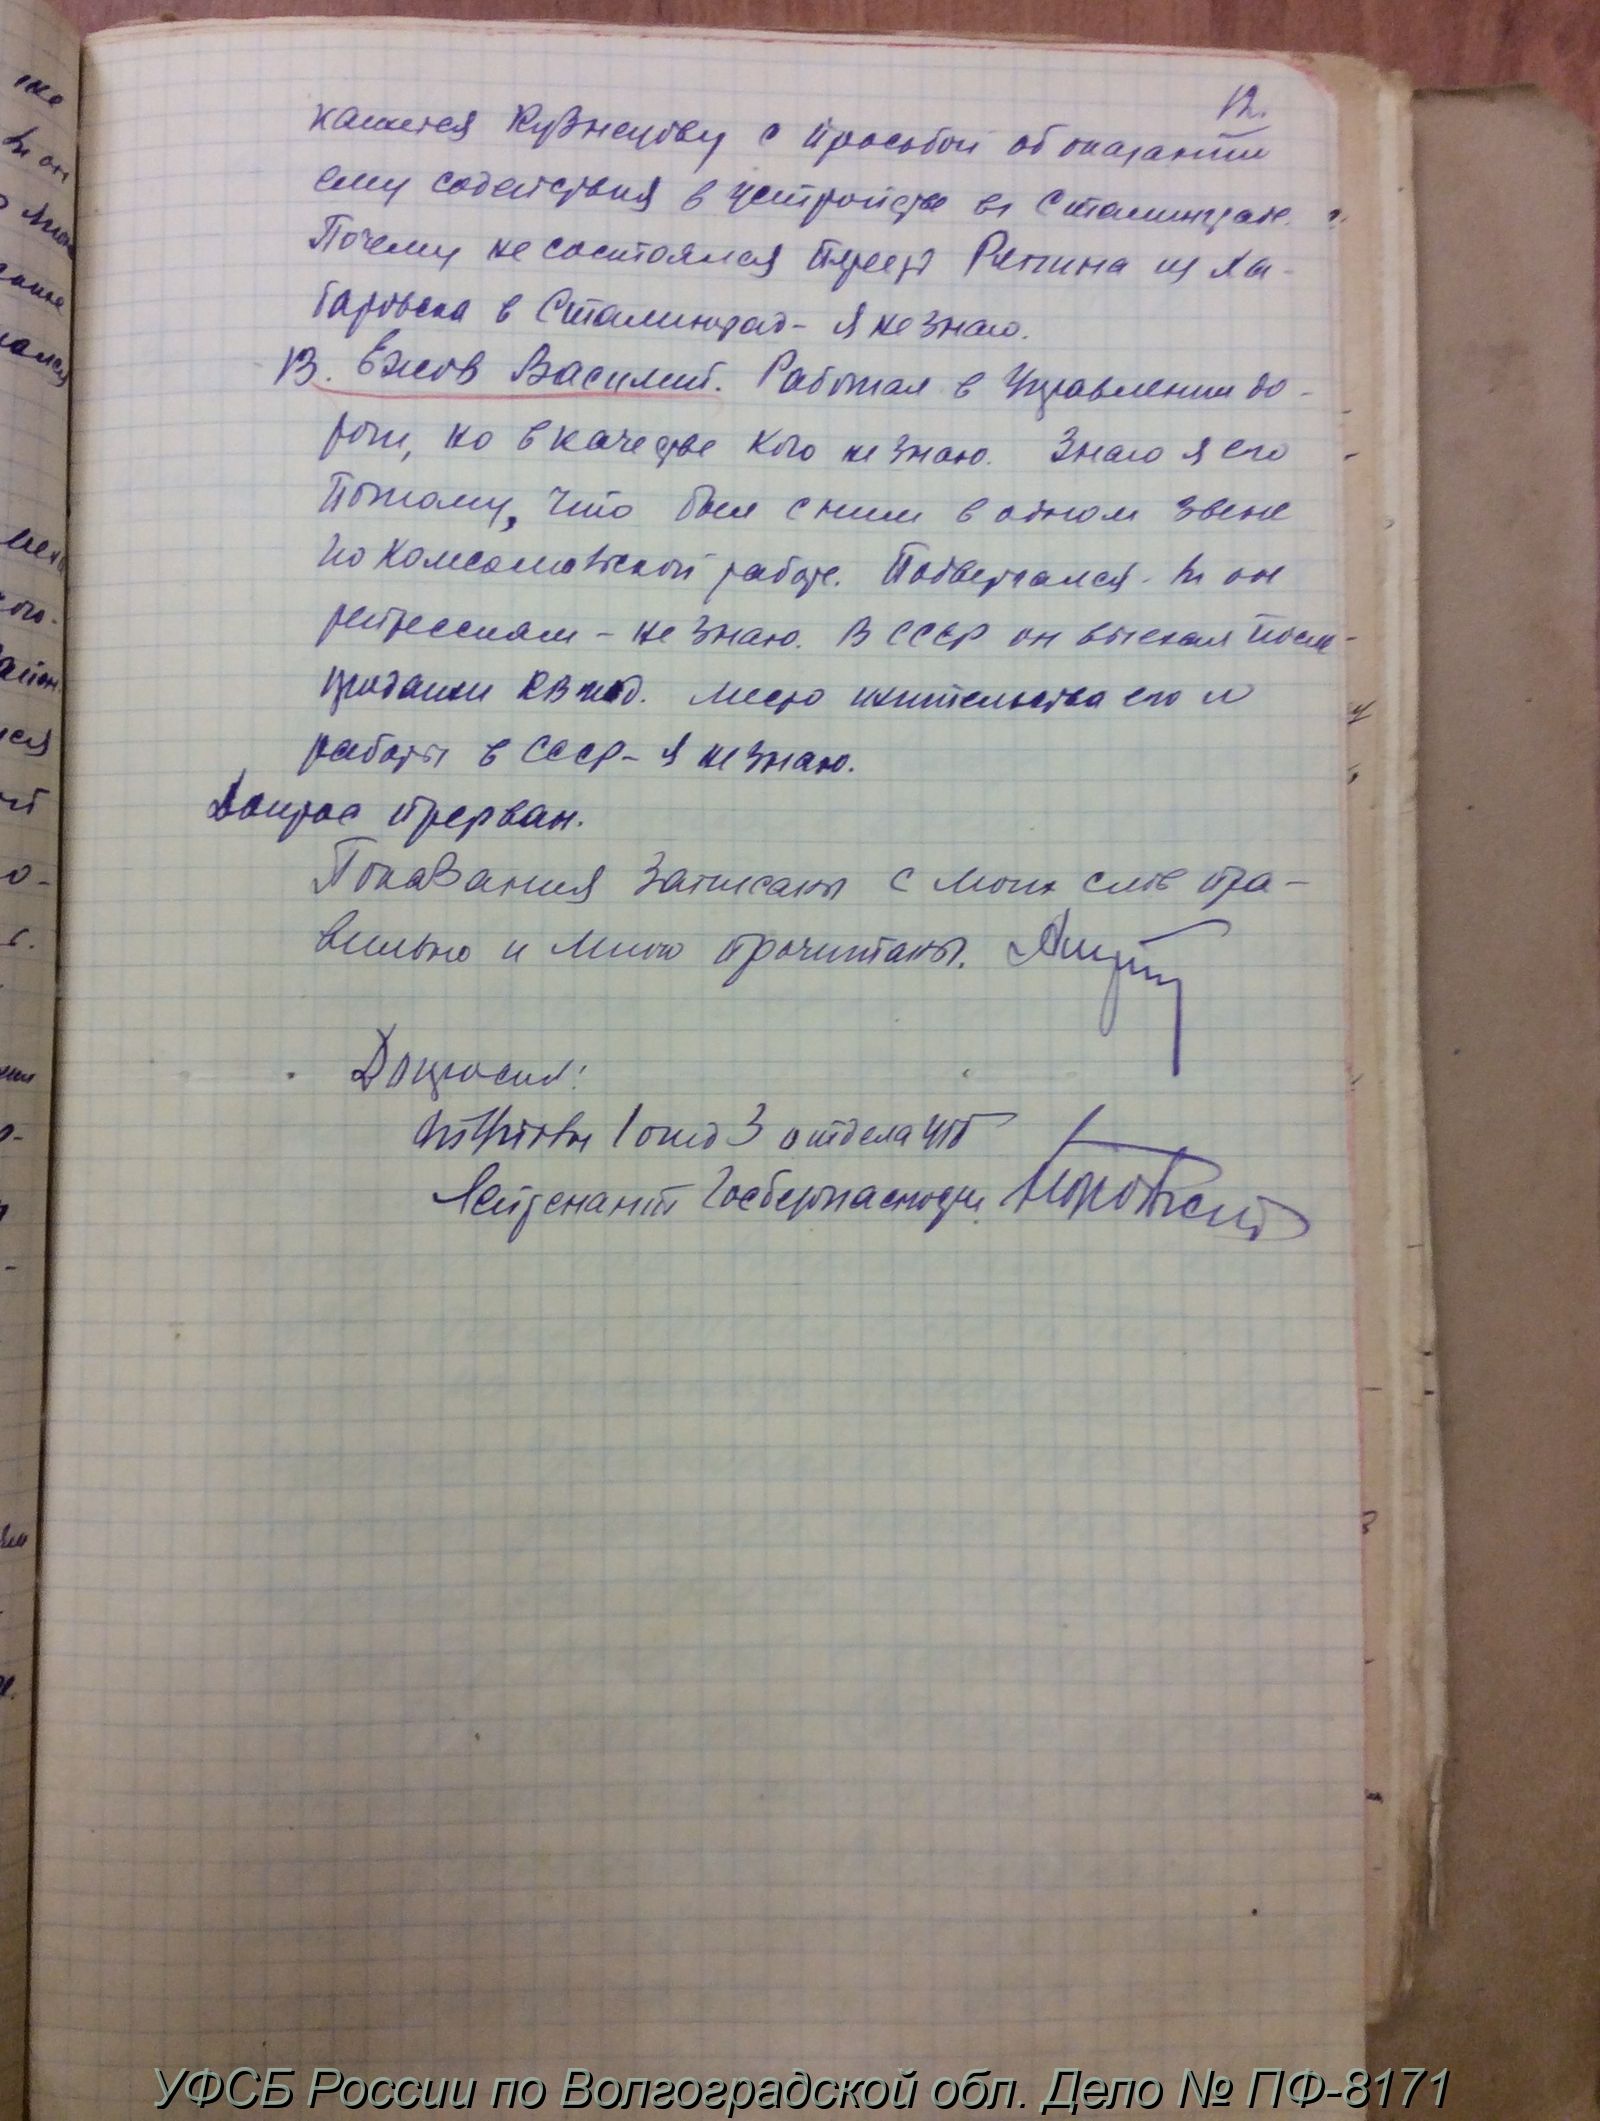 12.
кажется Кузнецову с просьбой об оказании
ему содействия в устройстве в г. Сталинграде.
Почему не состоялся переезд Репина из Ха-
баровска в Сталинград - я не знаю.
13. Ежов Василий. Работал в Управлении до-
роги, но в качестве кого не знаю. Знаю я его
потому, что был с ним в одном звене
по комсомольской работе. Подвергался ли он
репрессиям - не знаю. В СССР он выехал после
продажи КВжд. Место жительства его и
работы в СССР - я не знаю.
Допрос прерван.
Показания записаны с моих слов пра-
вильно и мною прочитаны.
Допросил:
1 отд 3 отдела УГБ
Лейтенант Госбезопасности
УФСБ России по Волгоградской обл. Дело № ПФ-8171